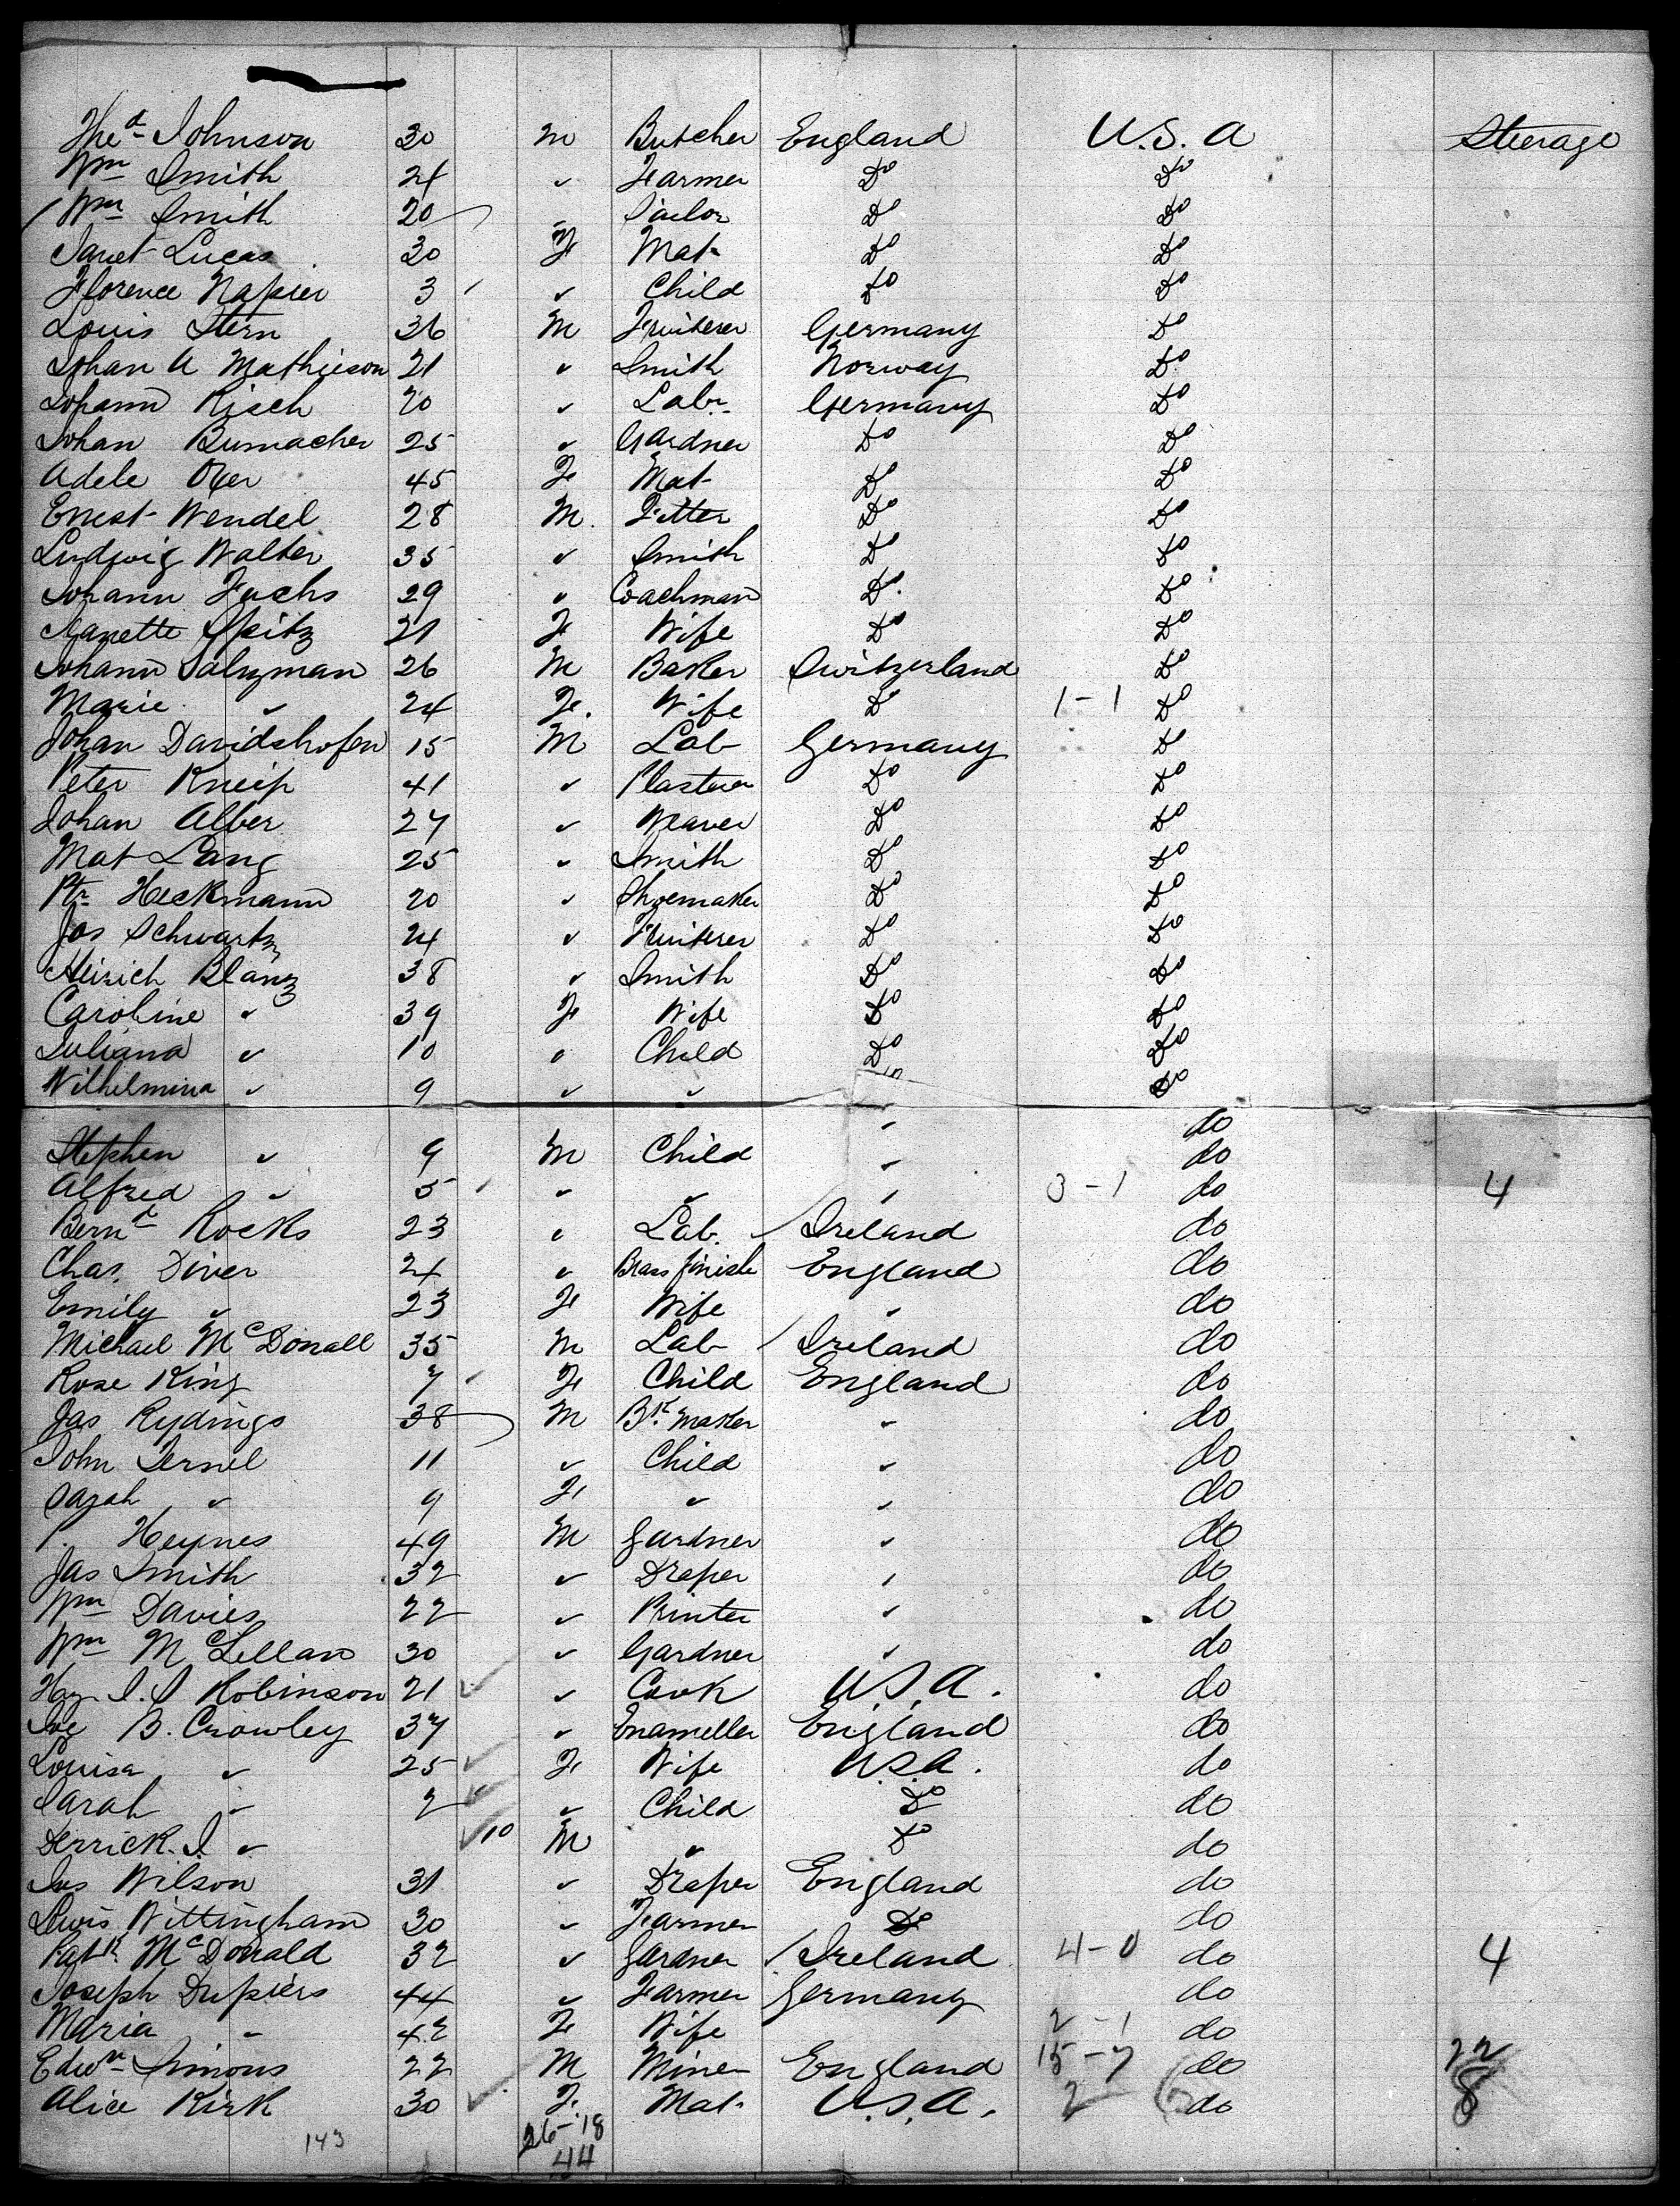 Fred Johnson 20 m Butcher England U.S.A Steerage
Wm Smith 24 " Farmer Do Do
Wm Smith 20 " Sailor Do Do
Janet Lucas 30 F Mat Do Do
Florence Napier 3 " Child Do Do
Louis Stern 36 M Fruiterer Germany Do
Johan A Mathieson 21 " Smith Norway Do
Johann Risch 20 " Labr Germany Do
Johan Bumacher 25 " Gardner Do Do
Adele 45 F Mat Do Do
Ernest Wendel 28 M. Fitter Do Do
Ludwig Walter 35 " Smith Do Do
Johann Fuchs 29 " Coachman Do Do
Nanette Spitz 21 F Wife Do Do
Johann Salzman 26 M Baker Switzerland Do
Marie " 24 F. Wife Do 1-1 Do
Johan Davidshofen 15 M Lab Germany Do
Peter Kneip 41 " Plasterer Do Do
Johan Alber 27 " Weaver Do Do
Mat Lang 25 " Smith Do Do
Ptr Heckmann 20 " Shoemaker Do Do
Jos Schwartz 24 " Fruiterer Do Do
Heirich Blanz 38 " Smith Do Do
Caroline " 39 F Wife Do Do
Juliana " 10 " Child Do Do
Wilhelmina " 9 " " Do Do
" do
Stephen " 9 M Child " do
Alfred " 5 " " " 3-1 do 4
Bernd Rocks 23 " Lab. Ireland do
Chas. Diver 24 " Brass finishe England do
Emily " 23 F Wife " do
Michael McDonall 35 M Lab Ireland do
Rose King 7 F Child England do
Jas Rydings 38 M Bk Maker " do
John Ternel 11 " Child " do
Sarah " 9 F " " do
P. Heynes 49 M Gardner " do
Jas Smith 32 " Draper " do
Wm Davies 22 " Printer " do
Wm McLellan 30 " Gardner " do
Hay J. S Robinson 21 " Cook U.S.A. do
Joe B. Crowley 37 " Enameller England do
Louisa " 25 F Wife U.S.A. do
Sarah " 2 " Child Do do
Derrick. J. " 10 M " Do do
Jas Wilson 31 " Draper England do
Lewis Wittingham 30 " Farmer Do do
Patk McDonald 32 " Gardner Ireland 4-0 do 4
Joseph Dupiers 44 " Farmer Germany do
Maria " 42 F Wife 2-1 do
Edwn Simons 22 M Miner England 15-7 do 22
Alice Kirk 30 F. Mat U.S.A. 2 do 8
143 26-18
44